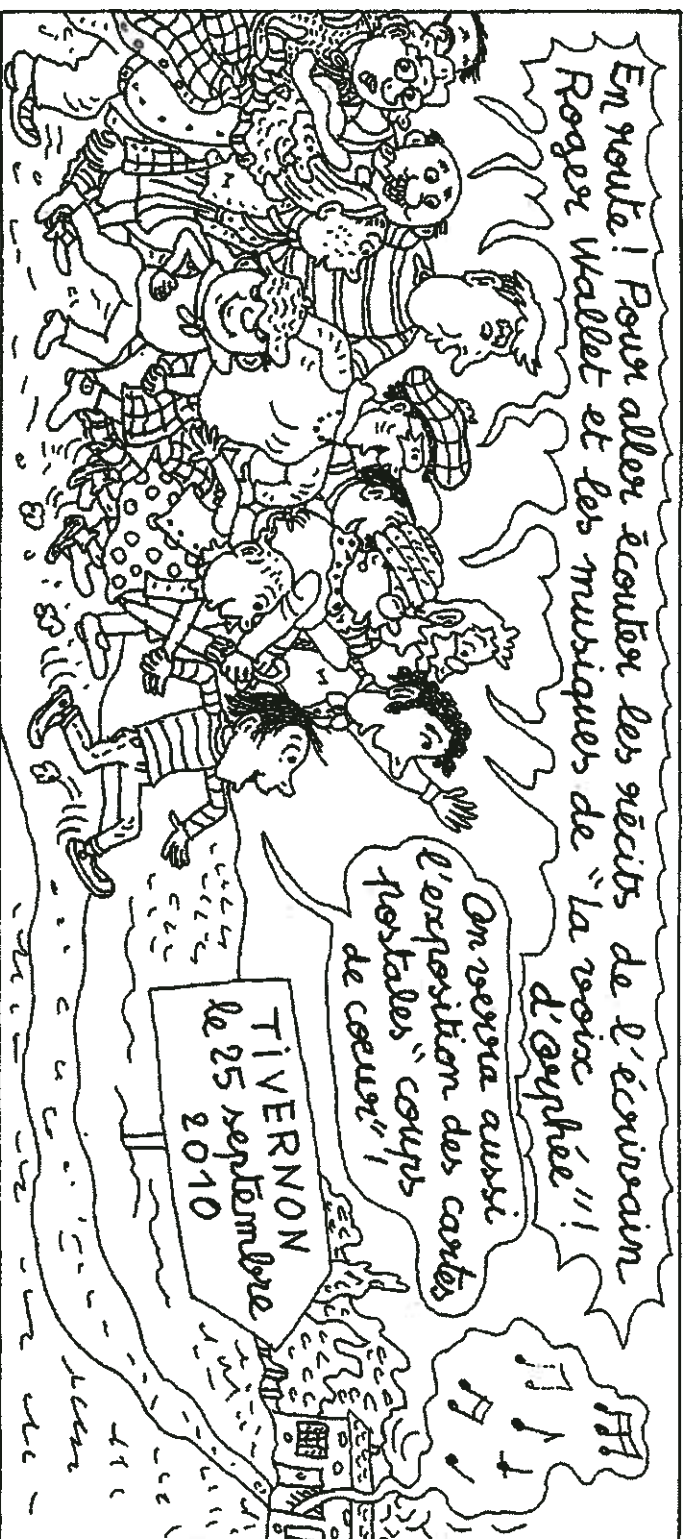 En route! Pour aller écouter les récits de l'écrivain
Roger Wallet et les musiques de "la voix
d'orphée"!
On verra aussi
l'exposition des cartes
postales "coups
de coeur"!
TiVERNON
le 25 septembre
2010